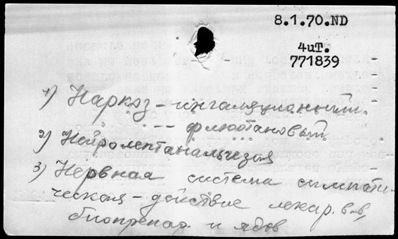 8.1.70.ND
4иТ.
771839
1) Наркоз - ингаляционный.
- " - - фторотановый.
2) Нейролептанальгезия
3) Нервная система симпати-
ческая - действие лекар. в-в,
биопрепар. и ядов